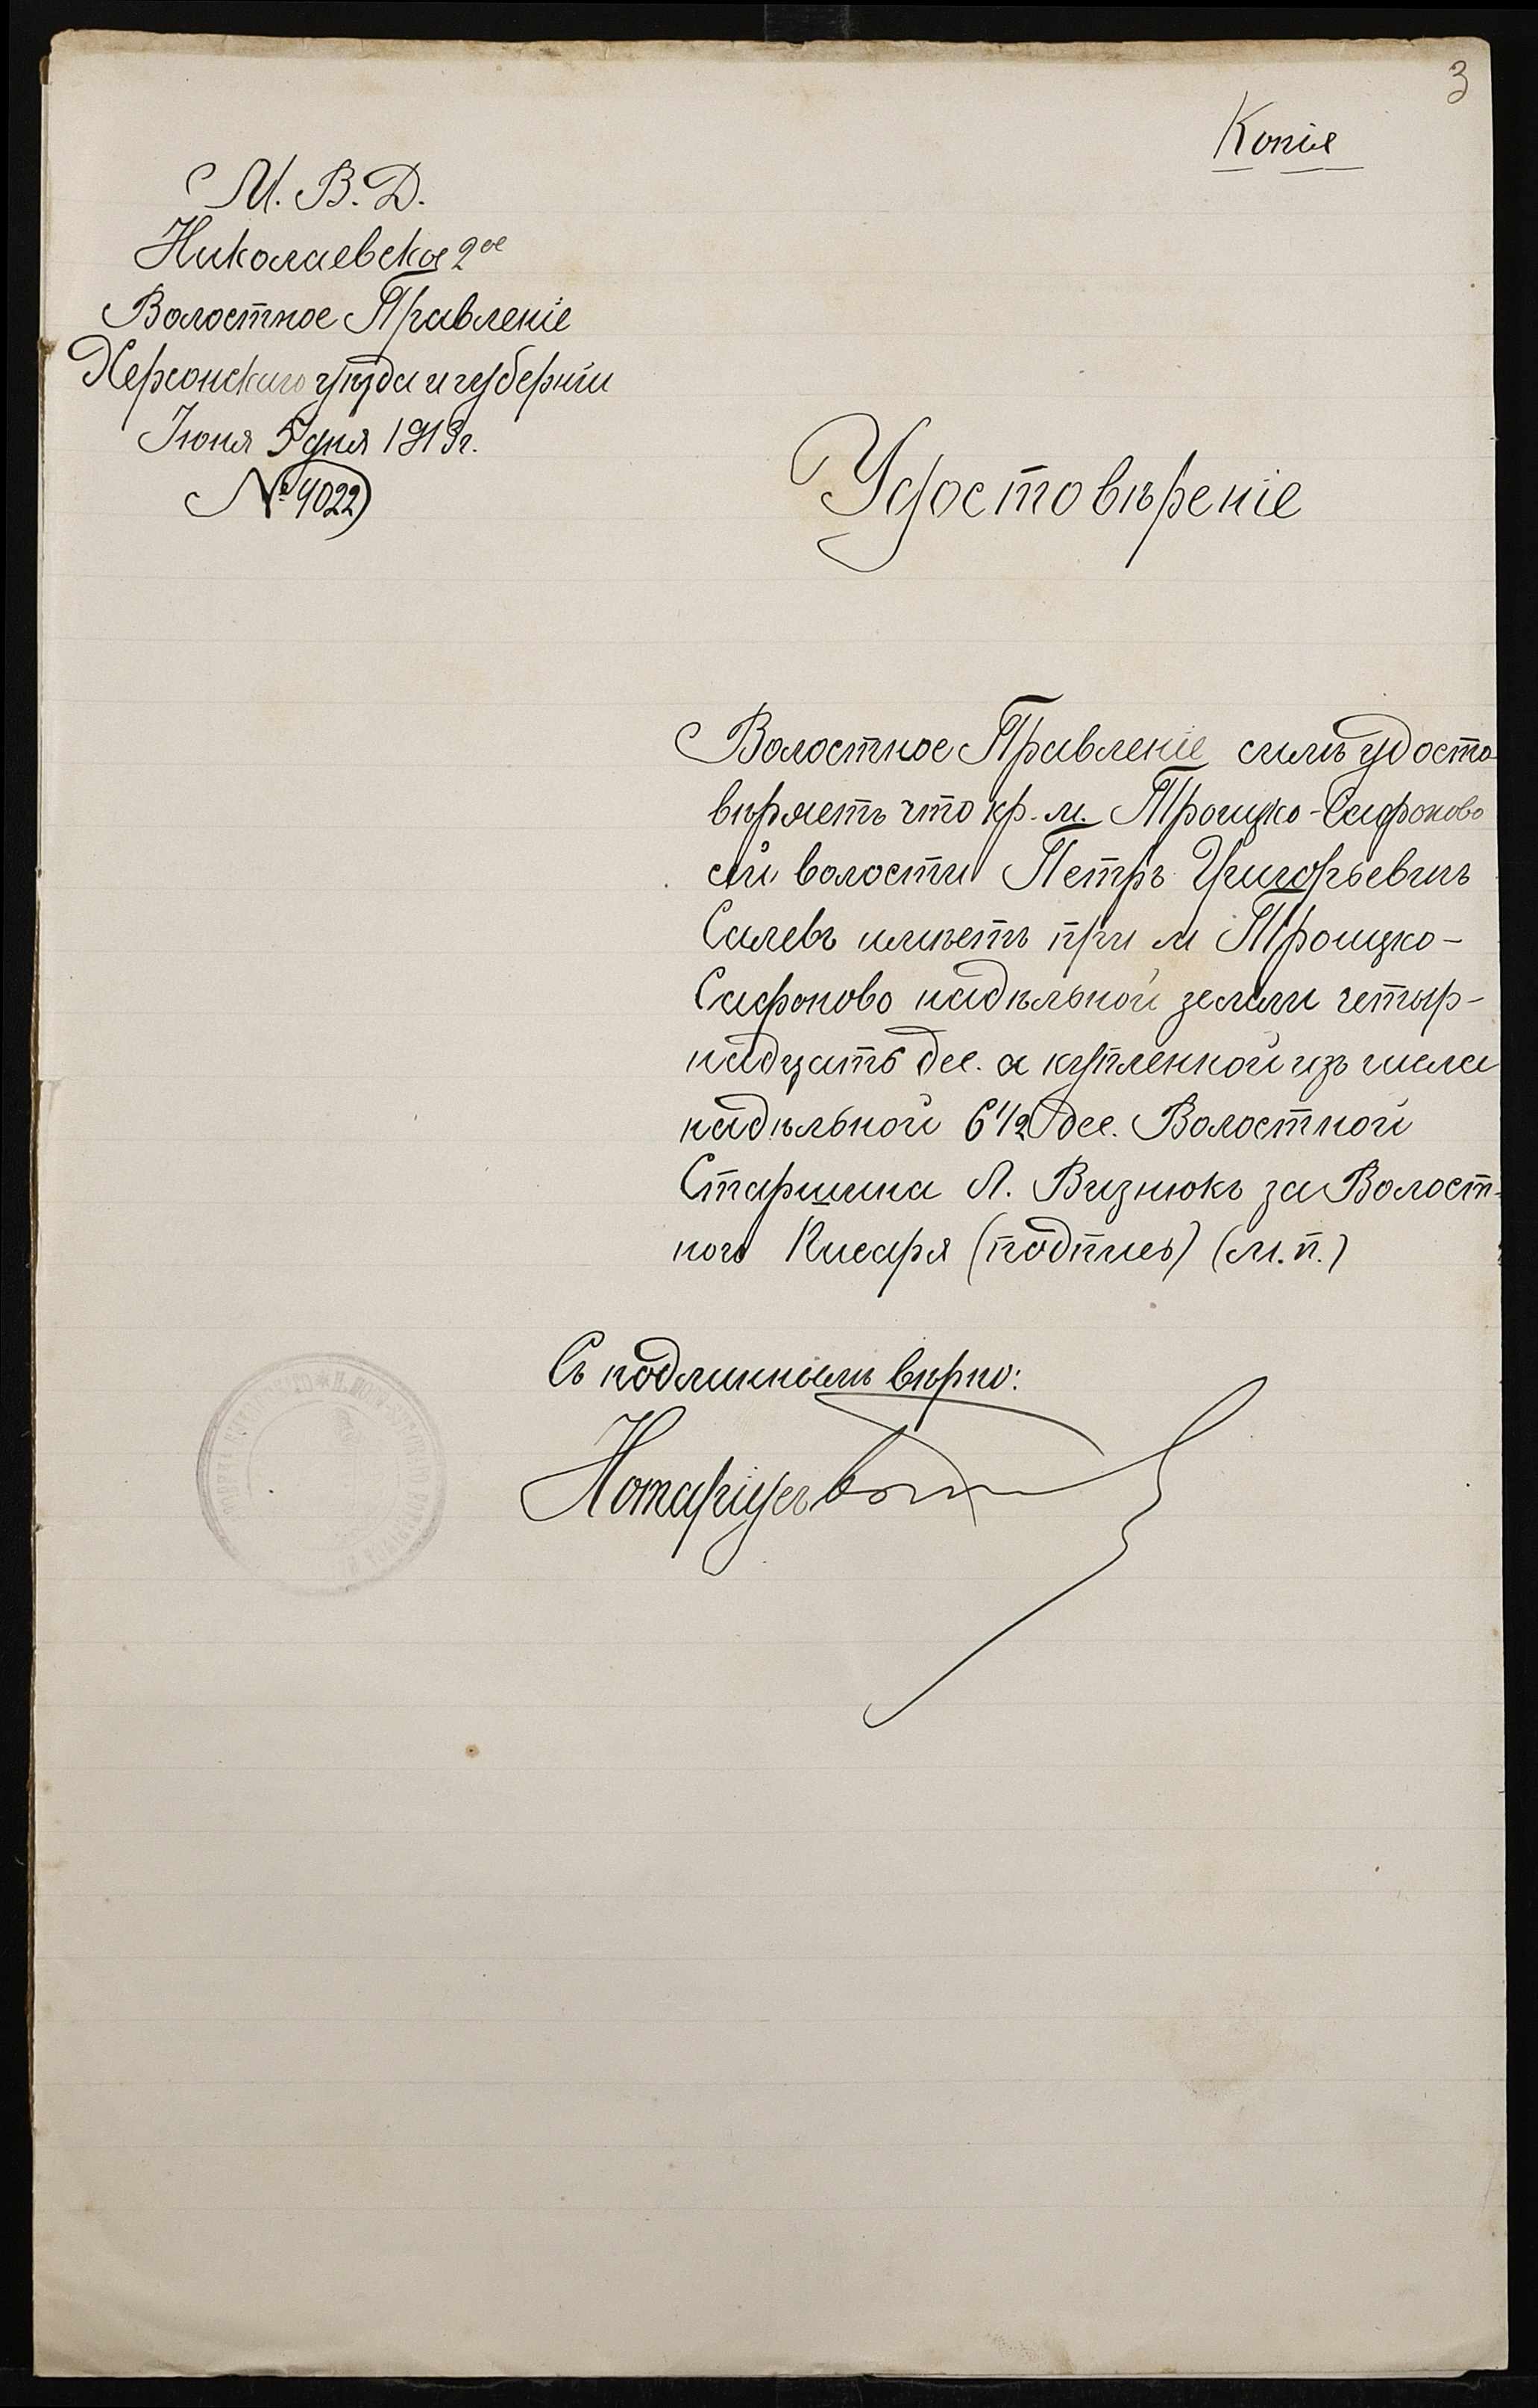 3
Копія
М. В. Д.
Николаевское 2ое
Волостное Правленіе
Херсонскаго уѣзда и губерніи
Іюня 5 дня 1913 г.
№ 4022
Удостовѣреніе
Волостное Правленіе симъ удосто-
вѣряетъ что кр. м. Троицко-Сафоново
сей волости Петръ Григорьевичъ
Салевъ имѣетъ при м Троицко-
Сафоново надѣльной земли четыр-
надцать дес. а купленной изъ числа
надѣльной 6 1/2 дес. Волостной
Старшина Л. Визнюкъ за Волост-
ного Писаря (подпись) (м. п.)
Съ подлиннымъ вѣрно:
Нотаріусъ